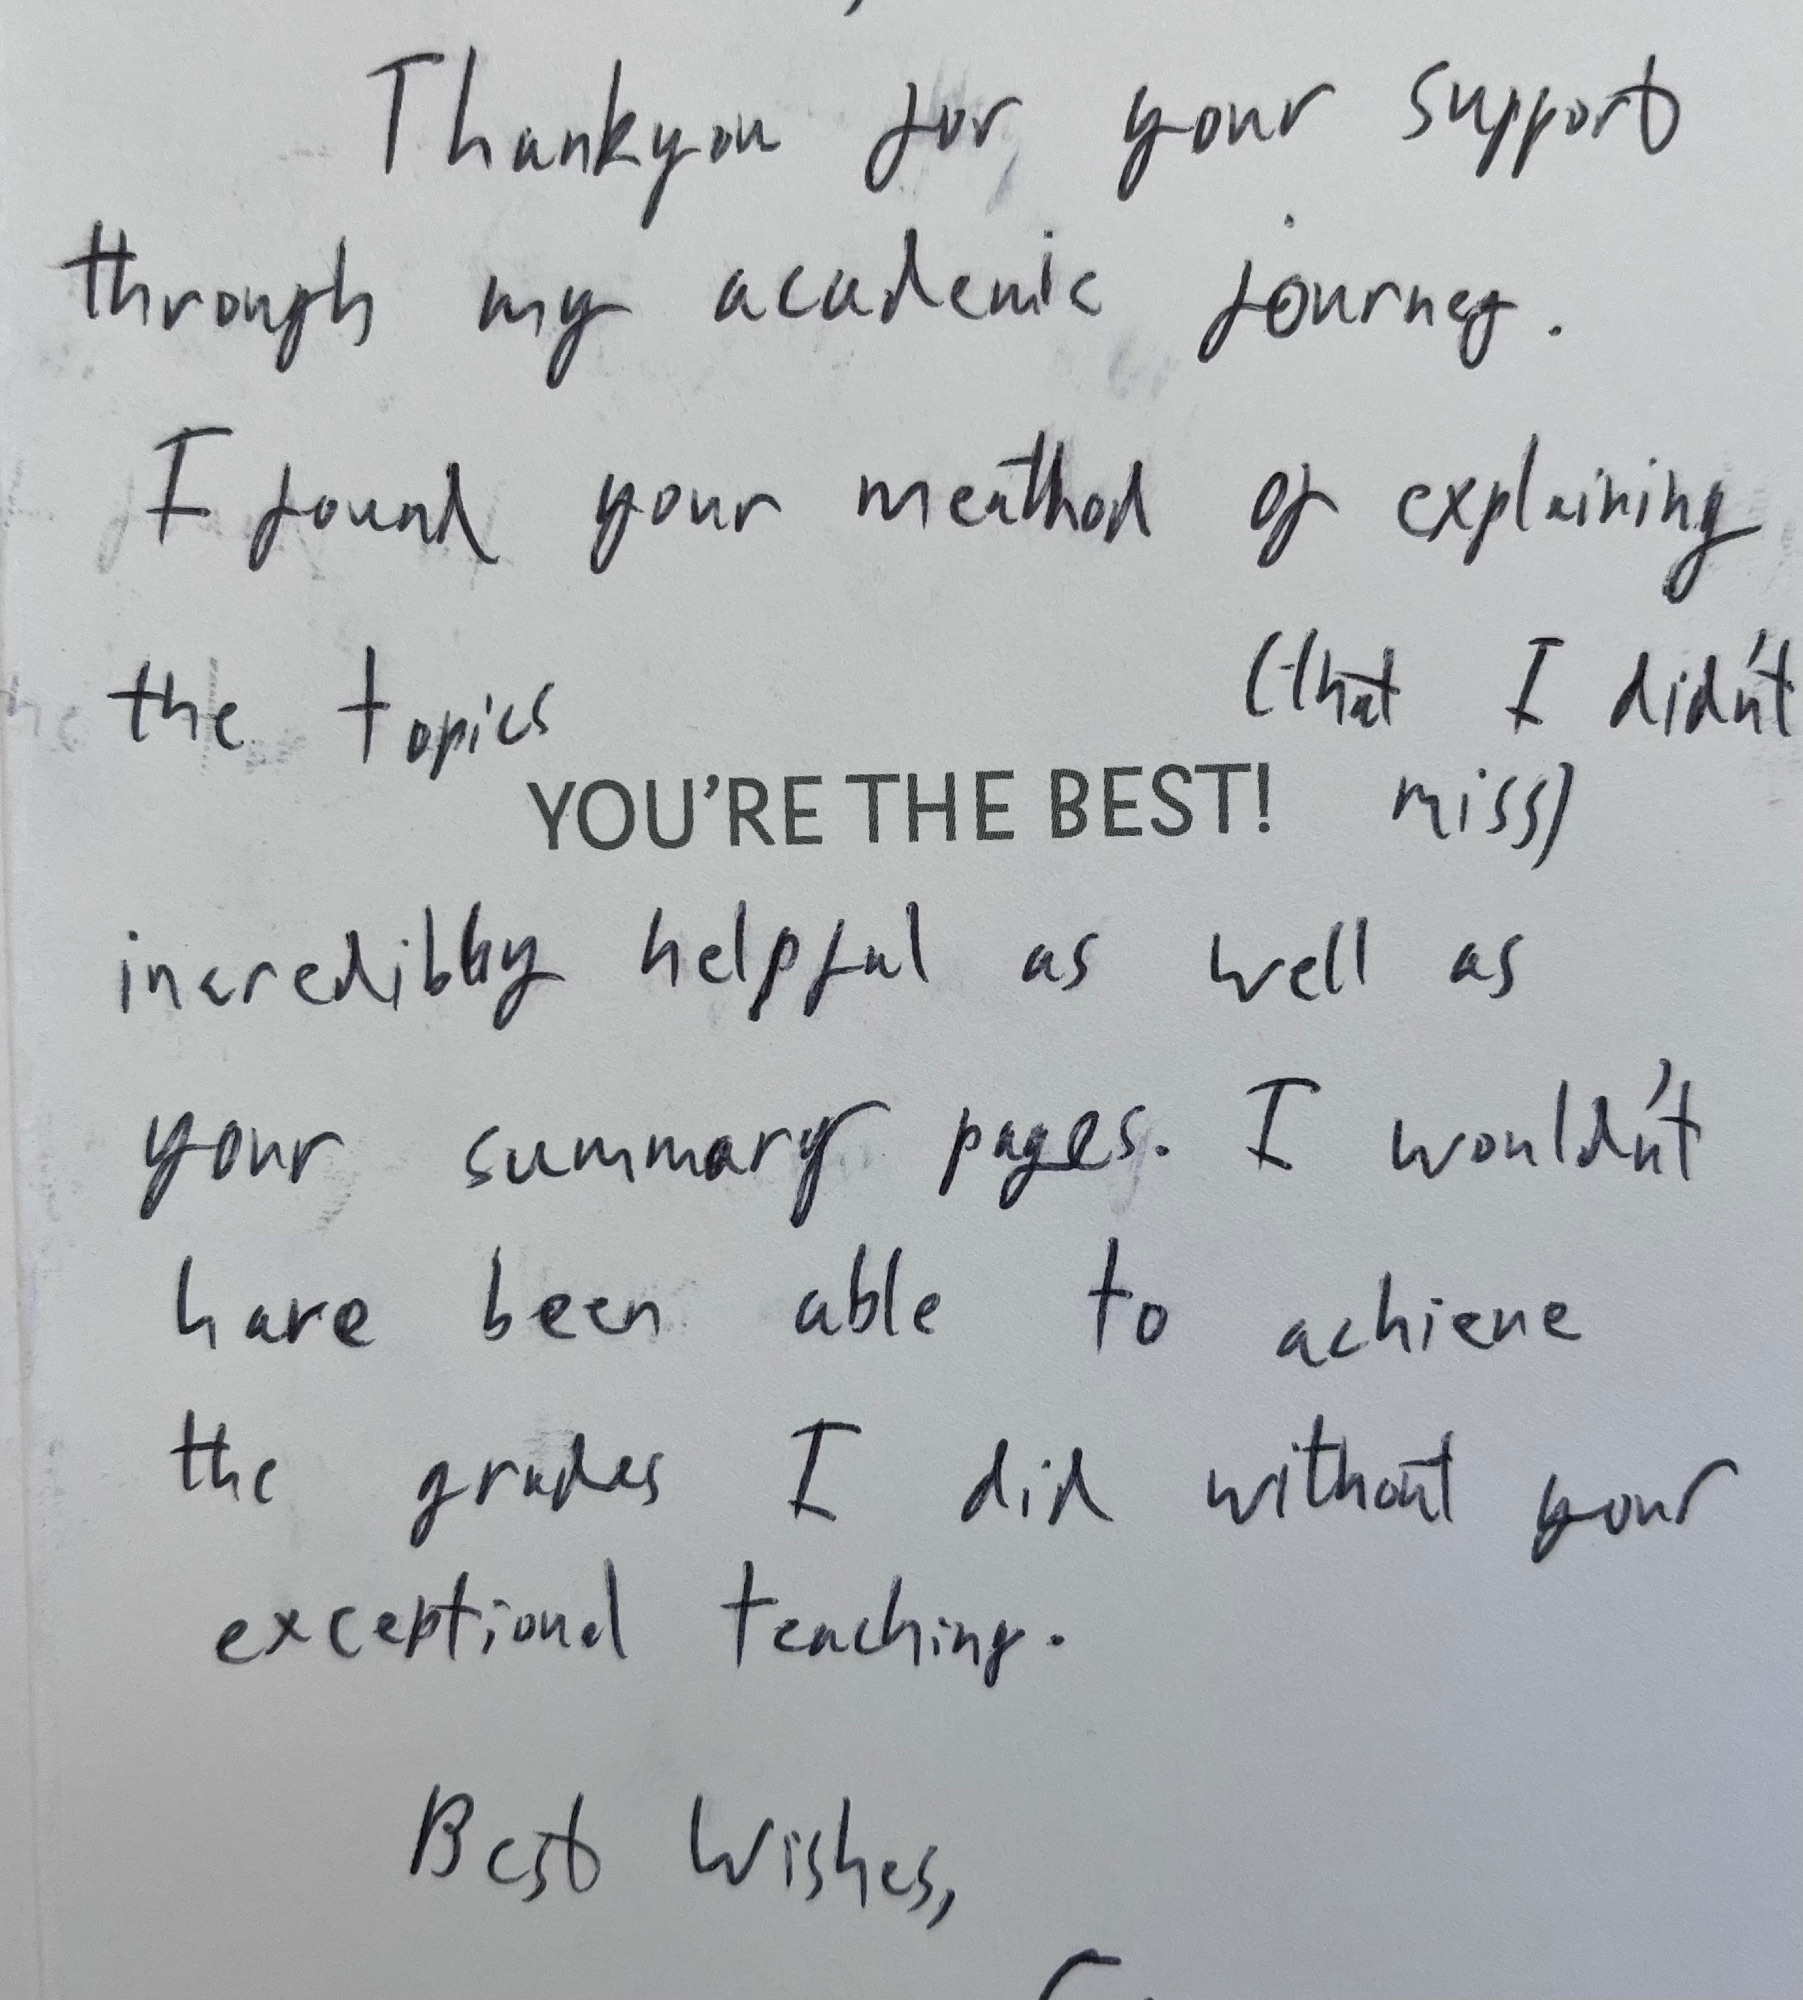 Thankyou for your support
through my academic journey.
I found your meathod of explaining
the topics (that I didn't
YOU'RE THE BEST! miss)
incredibly helpful as well as
your summary pages. I wouldn't
have been able to achieve
the grades I did without your
exceptional teaching.
Best Wishes,